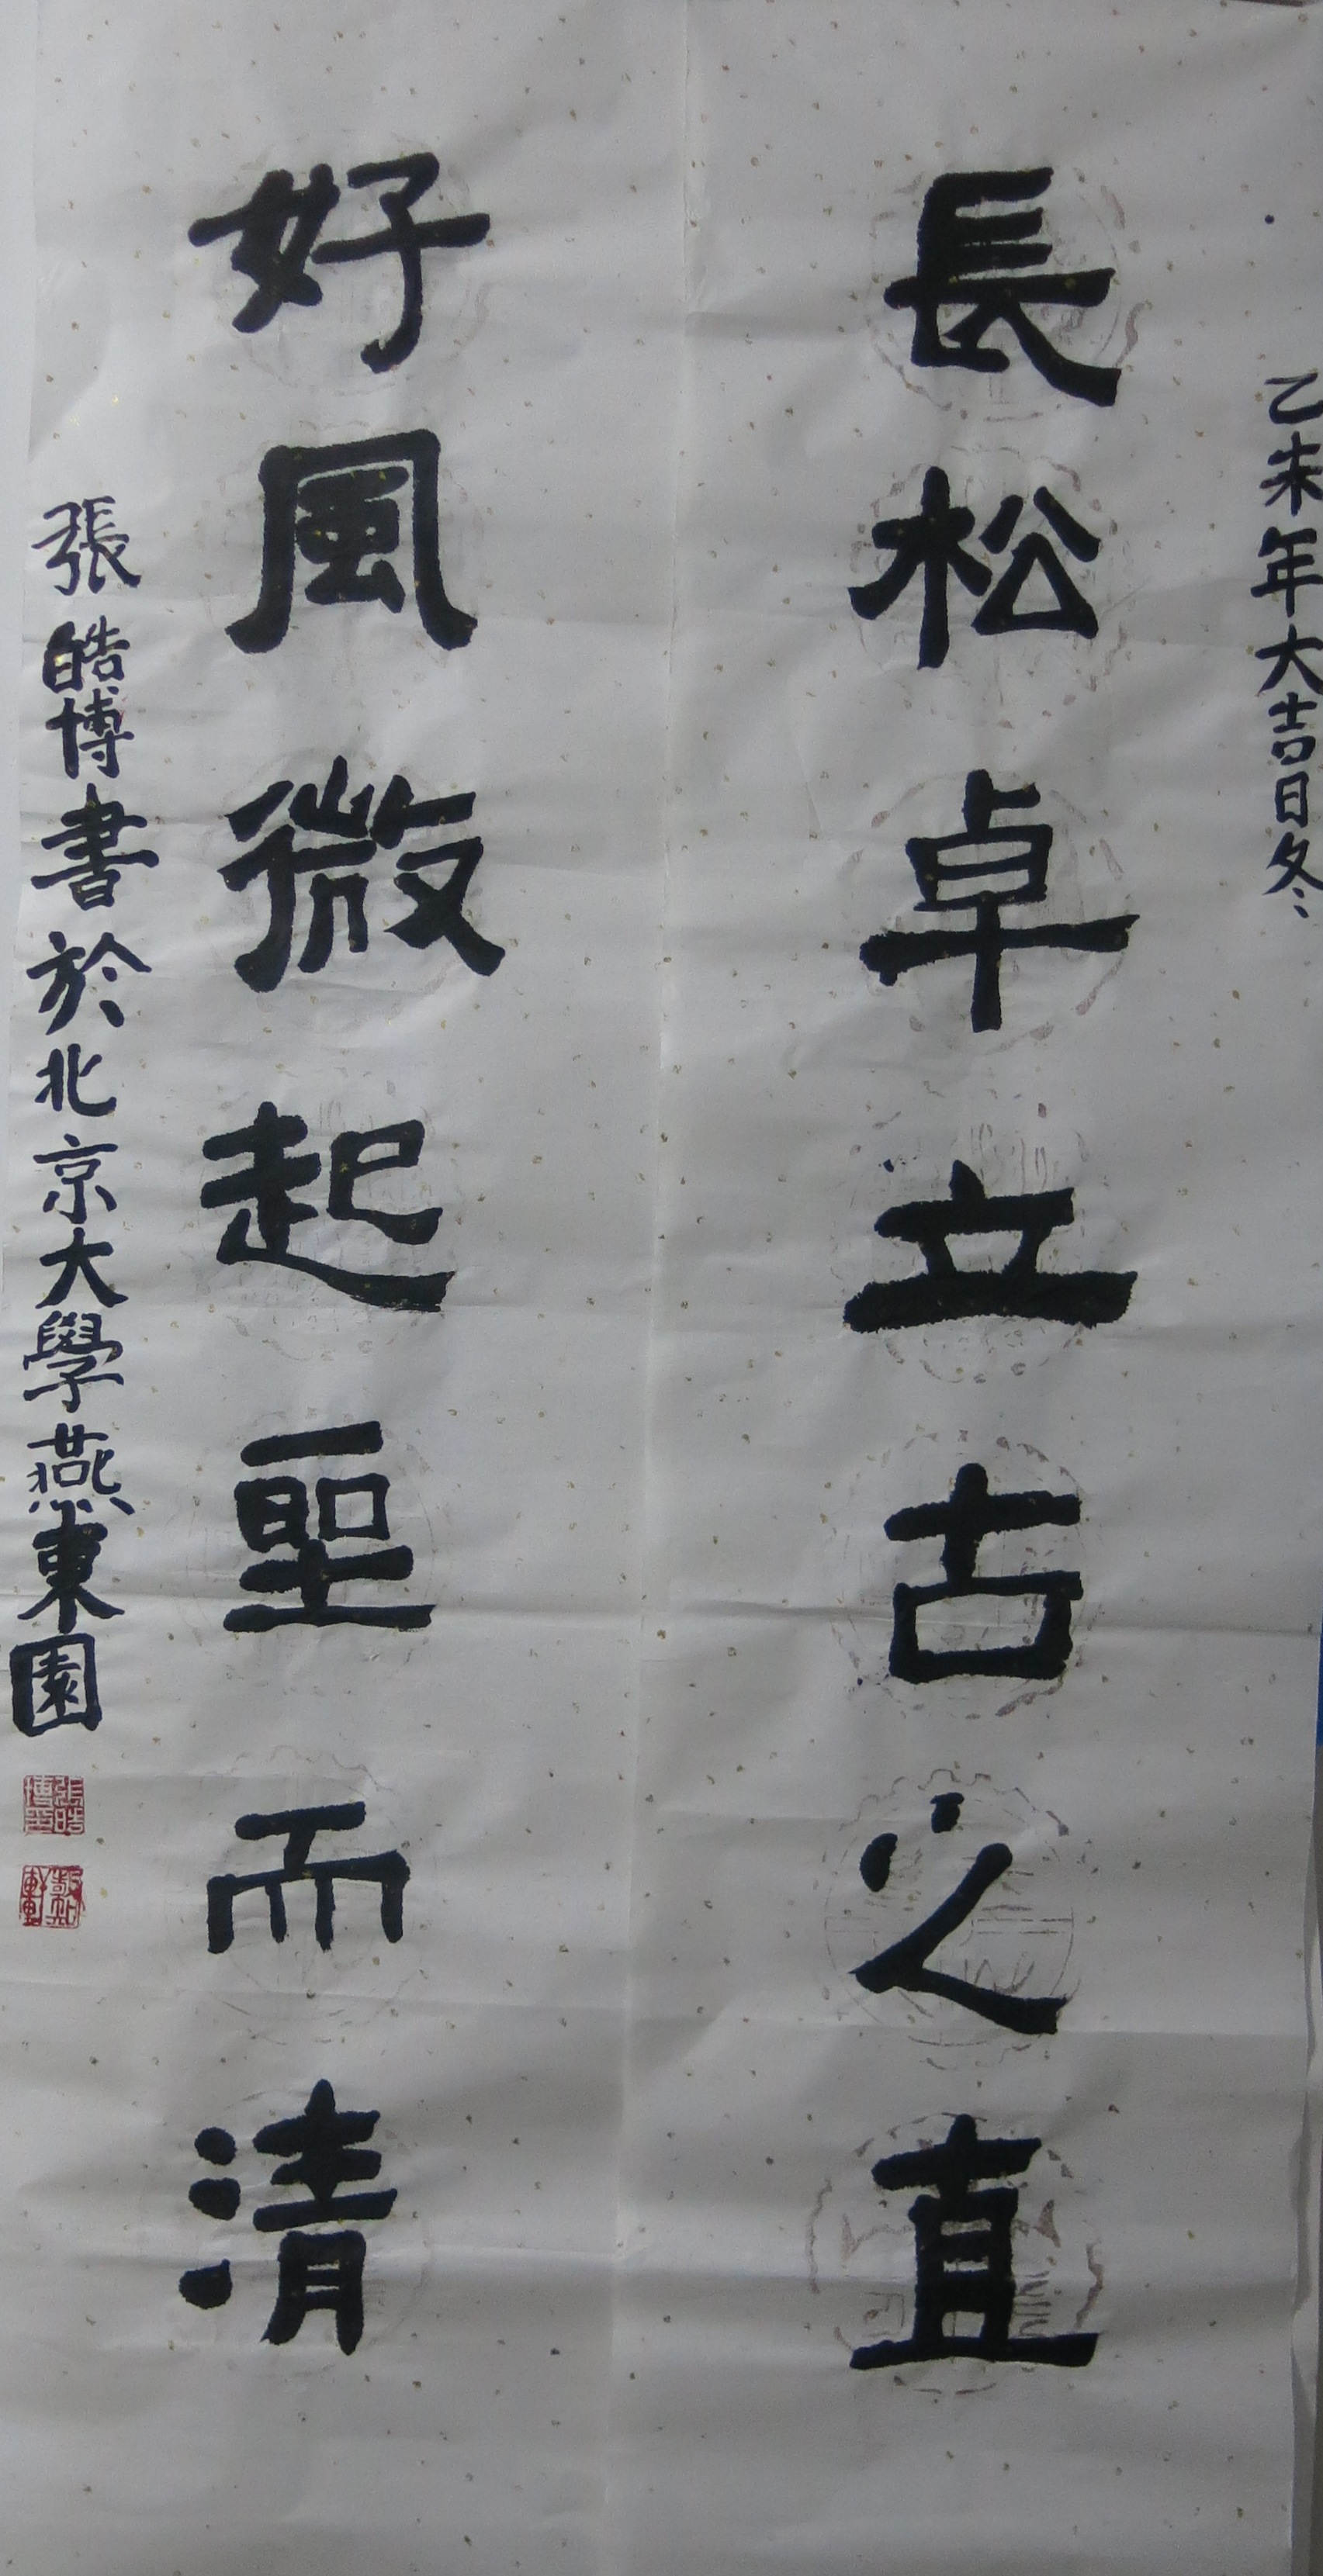 乙未年大吉日冬
長松卓立古之直
好風微起聖而清
張皓博書於北京大學燕東園
張皓博印